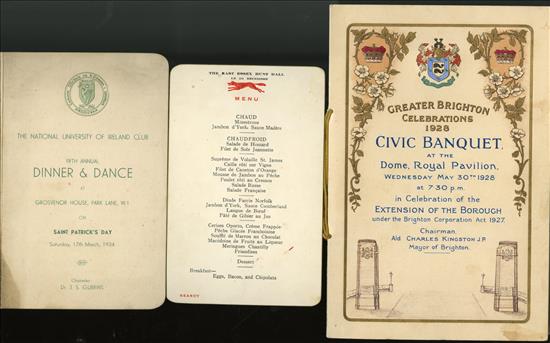 THE NATIONAL UNIVERSITY OF IRELAND CLUB
DINNER & DANCE
at
GROSVENOR HOUSE, PARK LANE, W.1
ON
SAINT PATRICK'S DAY
Saturday, 17th March, 1934
Chairman
Dr. J. S. GUBBINS
THE EAST ESSEX HUNT BALL
MENU
CHAUD
Minestrone
Jambon d'York, Sauce Madère
CHAUDFROID
Salade de Homard
Filet de Sole Jeannette
Suprême de Volaille St. James
Caille rôti sur Vigne
Filet de Caneton d'Orange
Mousse de Jambon au Pêche
Poulet rôti au Cresson
Salade Russe
Salade Française
Dinde Farcie Norfolk
Jambon d'York, Sauce Cumberland
Langue de Bœuf
Pâté de Gibier au Jus
Cerises Oporto, Crème Frappée
Pêche Glacée Framboisine
Soufflé de Marron au Chocolat
Macédoine de Fruits au Liqueur
Meringues Chantilly
Friandises
Dessert
Breakfast—
Eggs, Bacon, and Chipolata
GREATER BRIGHTON
CELEBRATIONS
1928
CIVIC BANQUET,
AT THE
Dome, Royal Pavilion,
WEDNESDAY MAY 30TH 1928
at 7·30 p.m.
in Celebration of the
EXTENSION OF THE BOROUGH
under the Brighton Corporation Act 1927.
Chairman,
Ald. CHARLES KINGSTON J.P.
Mayor of Brighton.